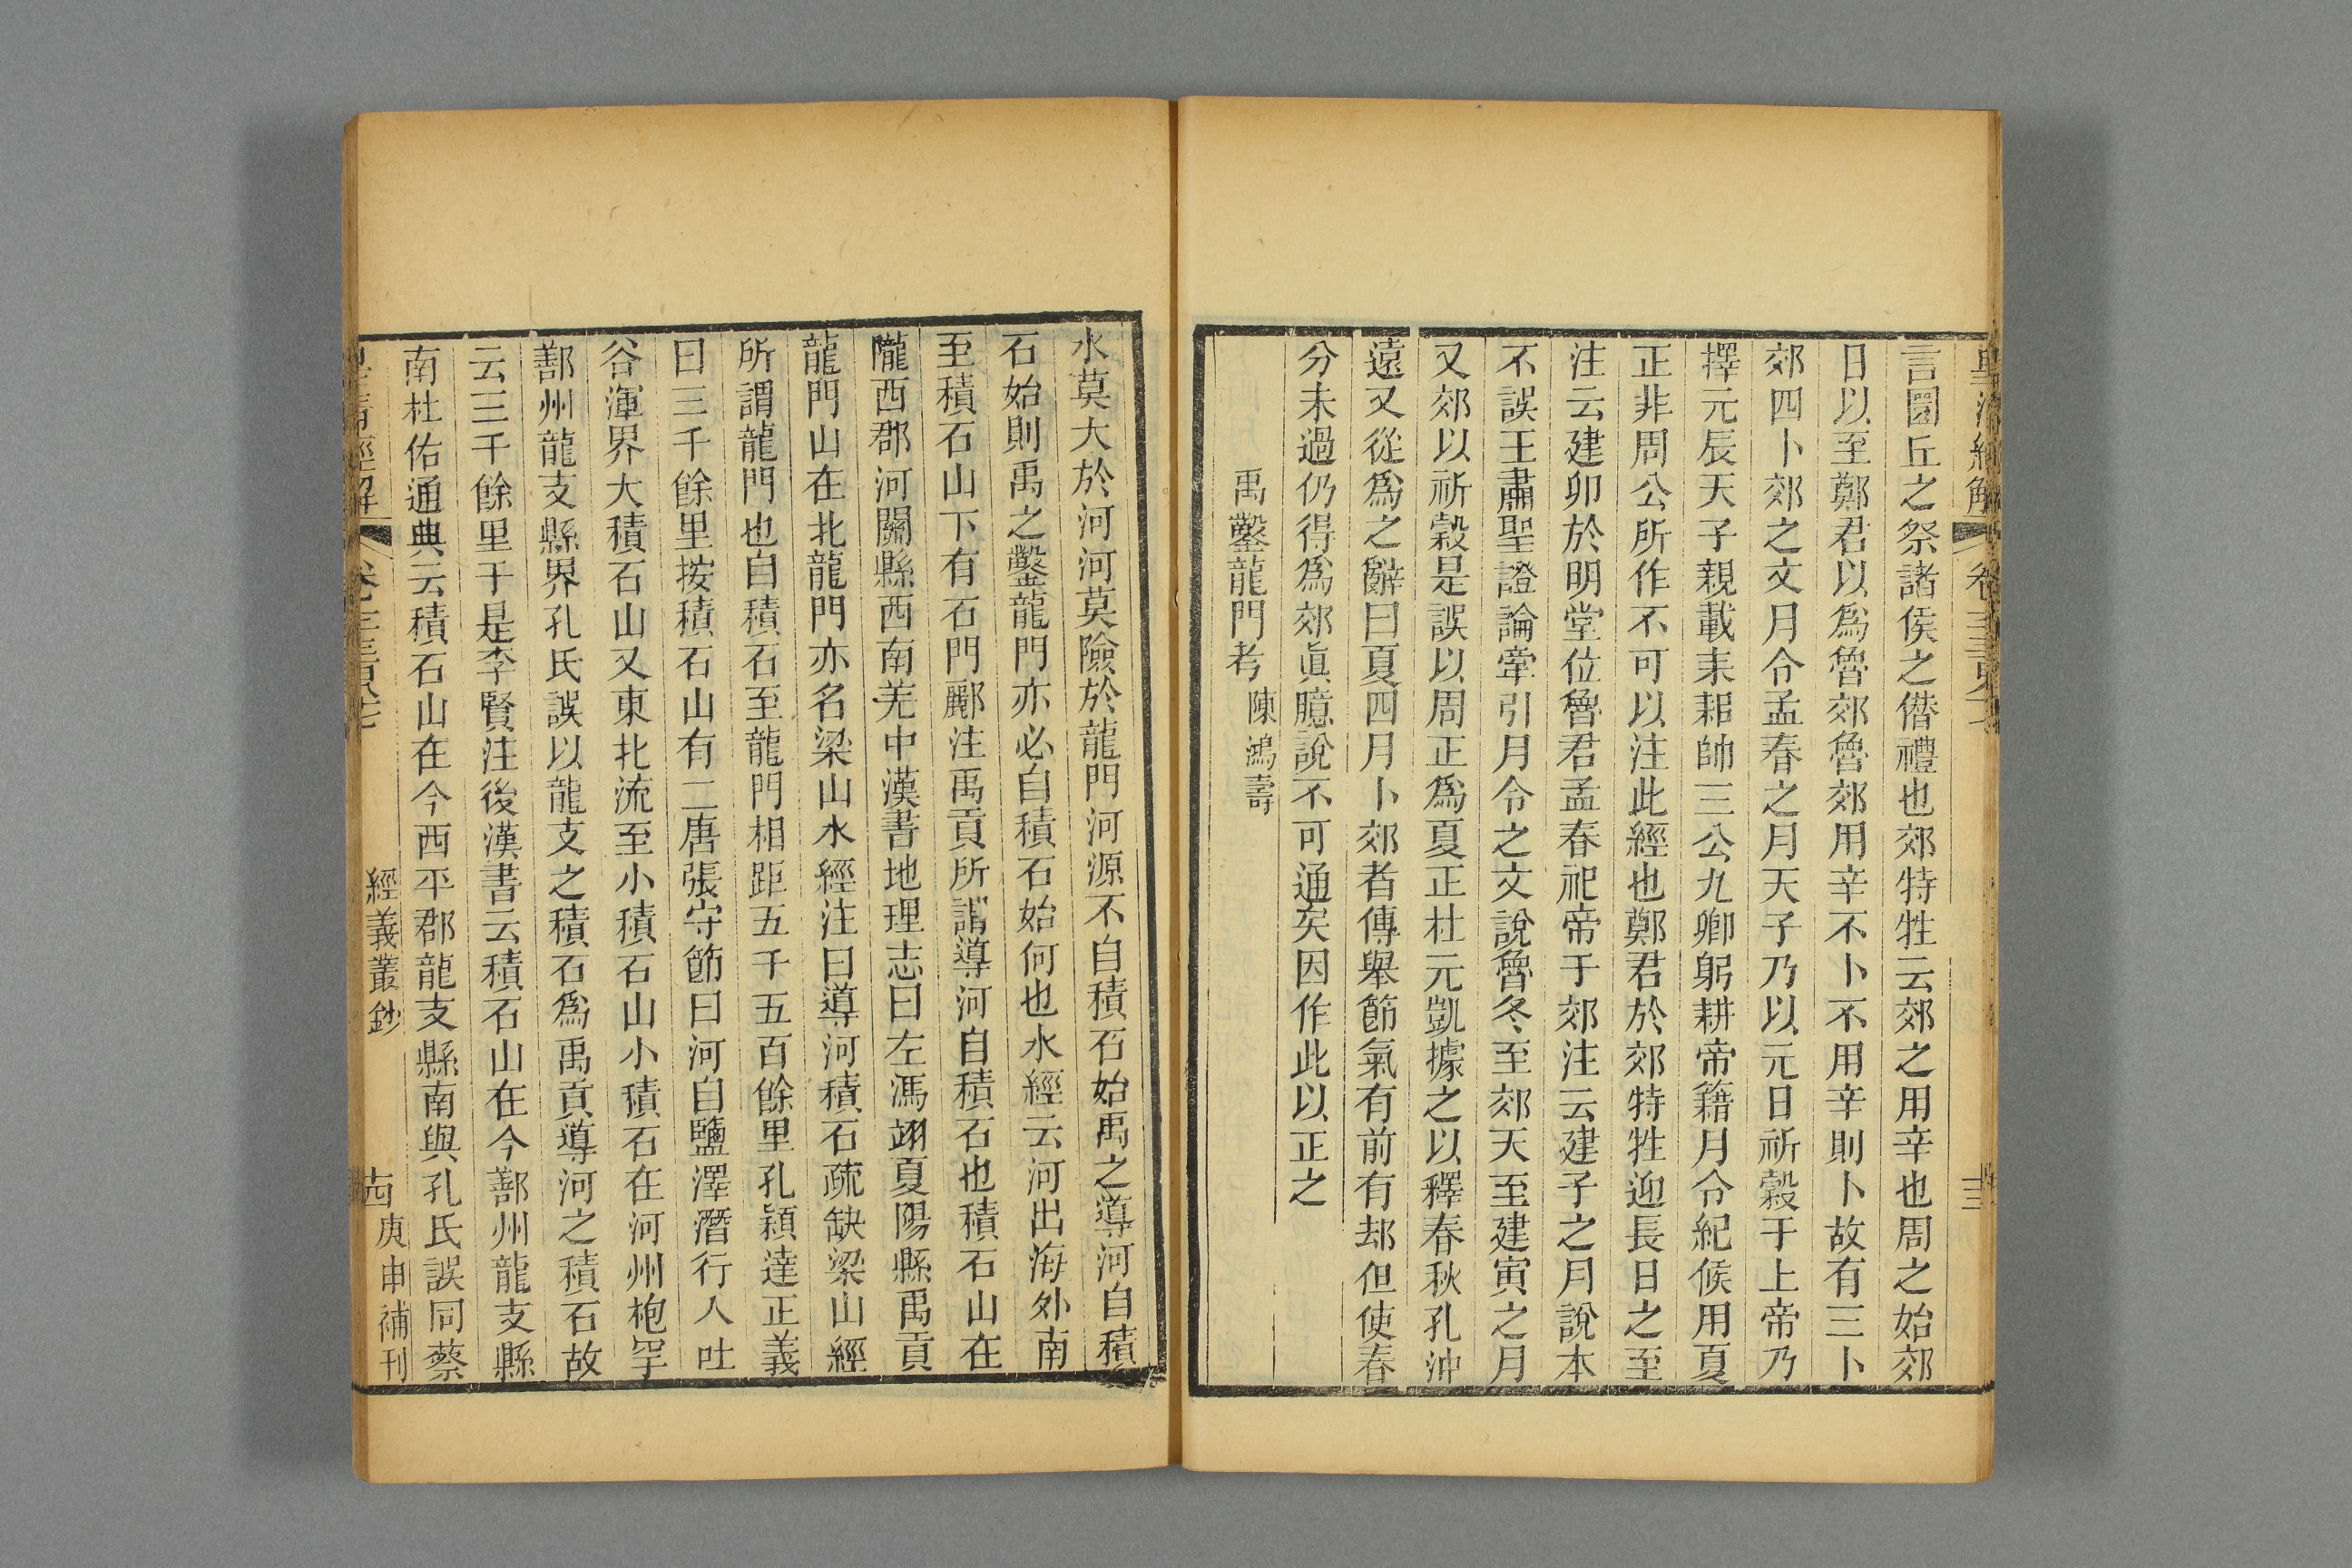 言圜丘之祭諸侯之僭禮也郊特牲云郊之用辛也周之始郊
日以至鄭君以爲魯郊魯郊用辛不卜不用辛則卜故有三卜
郊四卜郊之文月令孟春之月天子乃以元日祈穀于上帝乃
擇元辰天子親載耒耜帥三公九卿躬耕帝籍月令紀候用夏
正非周公所作不可以注此經也鄭君於郊特牲迎長日之至
注云建卯於明堂位魯君孟春祀帝于郊注云建子之月說本
不誤王肅聖證論牽引月令之文說魯冬至郊天至建寅之月
又郊以祈穀是誤以周正爲夏正杜元凱據之以釋春秋孔沖
遠又從爲之辭曰夏四月卜郊者傳舉節氣有前有却但使春
分未過仍得爲郊眞臆說不可通矣因作此以正之
禹鑿龍門考 陳鴻壽
水莫大於河河莫險於龍門河源不自積石始禹之導河自積
石始則禹之鑿龍門亦必自積石始何也水經云河出海外南
至積石山下有石門酈注禹貢所謂導河自積石也積石山在
隴西郡河關縣西南羌中漢書地理志曰左馮翊夏陽縣禹貢
龍門山在北龍門亦名梁山水經注曰導河積石疏缺梁山經
所謂龍門也自積石至龍門相距五千五百餘里孔穎達正義
曰三千餘里按積石山有二唐張守節曰河自鹽澤潛行入吐
谷渾界大積石山又東北流至小積石山小積石在河州枹罕
鄯州龍支縣界孔氏誤以龍支之積石爲禹貢導河之積石故
云三千餘里于是李賢注後漢書云積石山在今鄯州龍支縣
南杜佑通典云積石山在今西平郡龍支縣南與孔氏誤同蔡
經義叢鈔
庚申補刊